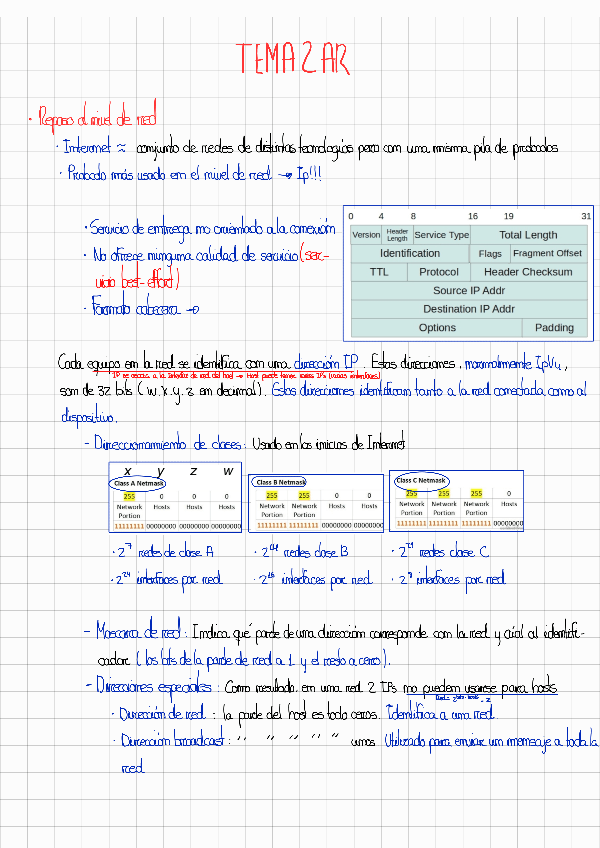 TEMA 2 AR
· Repaso al nivel de red
· Internet ≈ conjunto de redes de distintas tecnologías pero con una misma pila de protocolos
· Protocolo más usado en el nivel de red → Ip!!!
· Servicio de entrega no orientado a la conexión
· No ofrece ninguna calidad de servicio (ser-
vicio best-effort)
· Formato cabecera →
0 4 8 16 19 31
Version Header Length Service Type Total Length
Identification Flags Fragment Offset
TTL Protocol Header Checksum
Source IP Addr
Destination IP Addr
Options Padding
Cada equipo en la red se identifica con una dirección IP. Estas direcciones, normalmente IpV4,
IP se asocia a la interfaz de red del host → Host puede tener varias IPs (varias interfaces)
son de 32 bits (w.x.y.z en decimal). Estas direcciones identifican tanto a la red conectada como al
dispositivo.
- Direccionamiento de clases: Usado en los inicios de Internet
x y z w
Class A Netmask
255 0 0 0
Network Portion Hosts Hosts Hosts
11111111 00000000 00000000 00000000
Class B Netmask
255 255 0 0
Network Portion Network Portion Hosts Hosts
11111111 11111111 00000000 00000000
Class C Netmask
255 255 255 0
Network Portion Network Portion Network Portion Hosts
11111111 11111111 11111111 00000000
· 2⁷ redes de clase A · 2¹⁴ redes clase B · 2²¹ redes clase C
· 2²⁴ interfaces por red · 2¹⁶ interfaces por red · 2⁸ interfaces por red
- Mascara de red: Indica qué parte de una dirección corresponde con la red y cúal al identifi-
cador (los bits de la parte de red a 1 y el resto a cero).
- Direcciones especiales: Como resultado, en una red 2 IPs no pueden usarse para hosts
· Dirección de red: la parte del host es todo ceros. Identifica a una red
· Dirección broadcast: " " " " " unos. Utilizado para enviar un mensaje a toda la
red